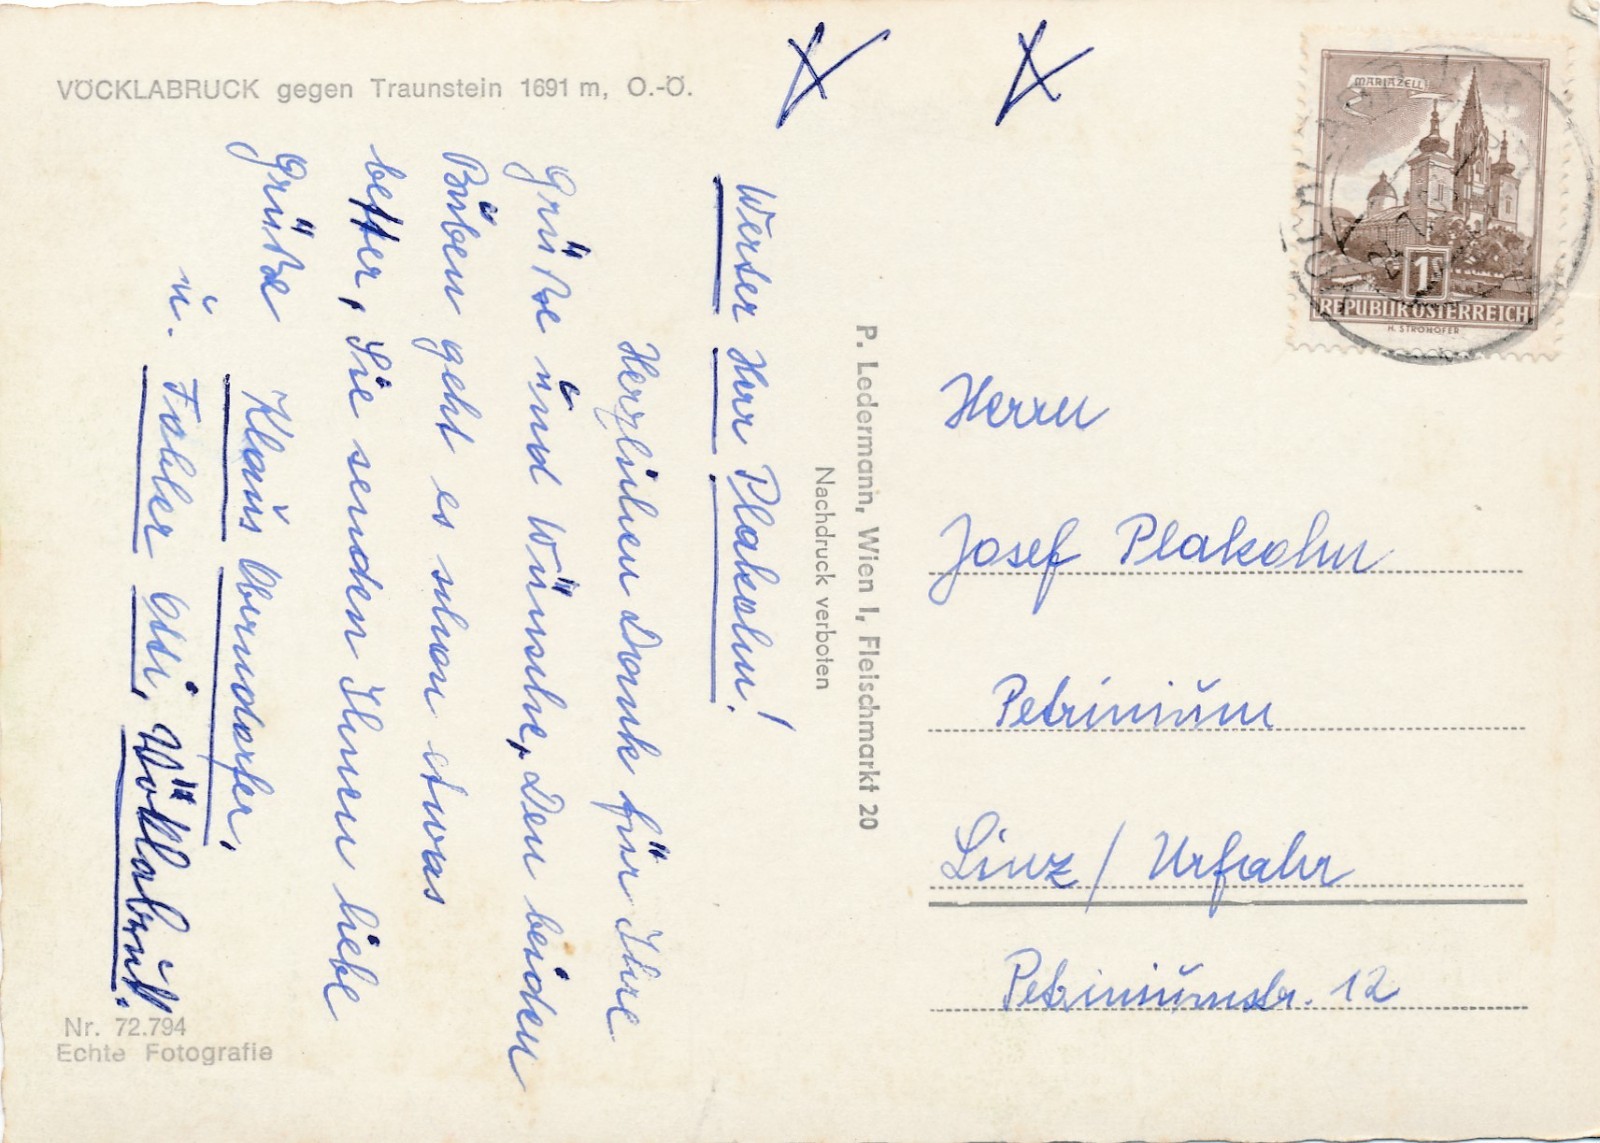 VÖCKLABRUCK gegen Traunstein 1691 m, O.-Ö.
Werter Herr Plakolm!
Herzlichen Dank für Ihre
Grüße und Wünsche, Den beiden
Buben geht es schon etwas
better, Sie senden Ihnen liebe
Grüße
Klaus Oberndorfer,
u. Fabler Ossi, Vöcklabruck.
Nr. 72.794
Echte Fotografie
P. Ledermann, Wien I, Fleischmarkt 20
Nachdruck verboten
MARIAZELL
1S
REPUBLIK ÖSTERREICH
H. STROHOFER
Herrn
Josef Plakolm
Petrinium
Linz / Urfahr
Petriniumstr. 12